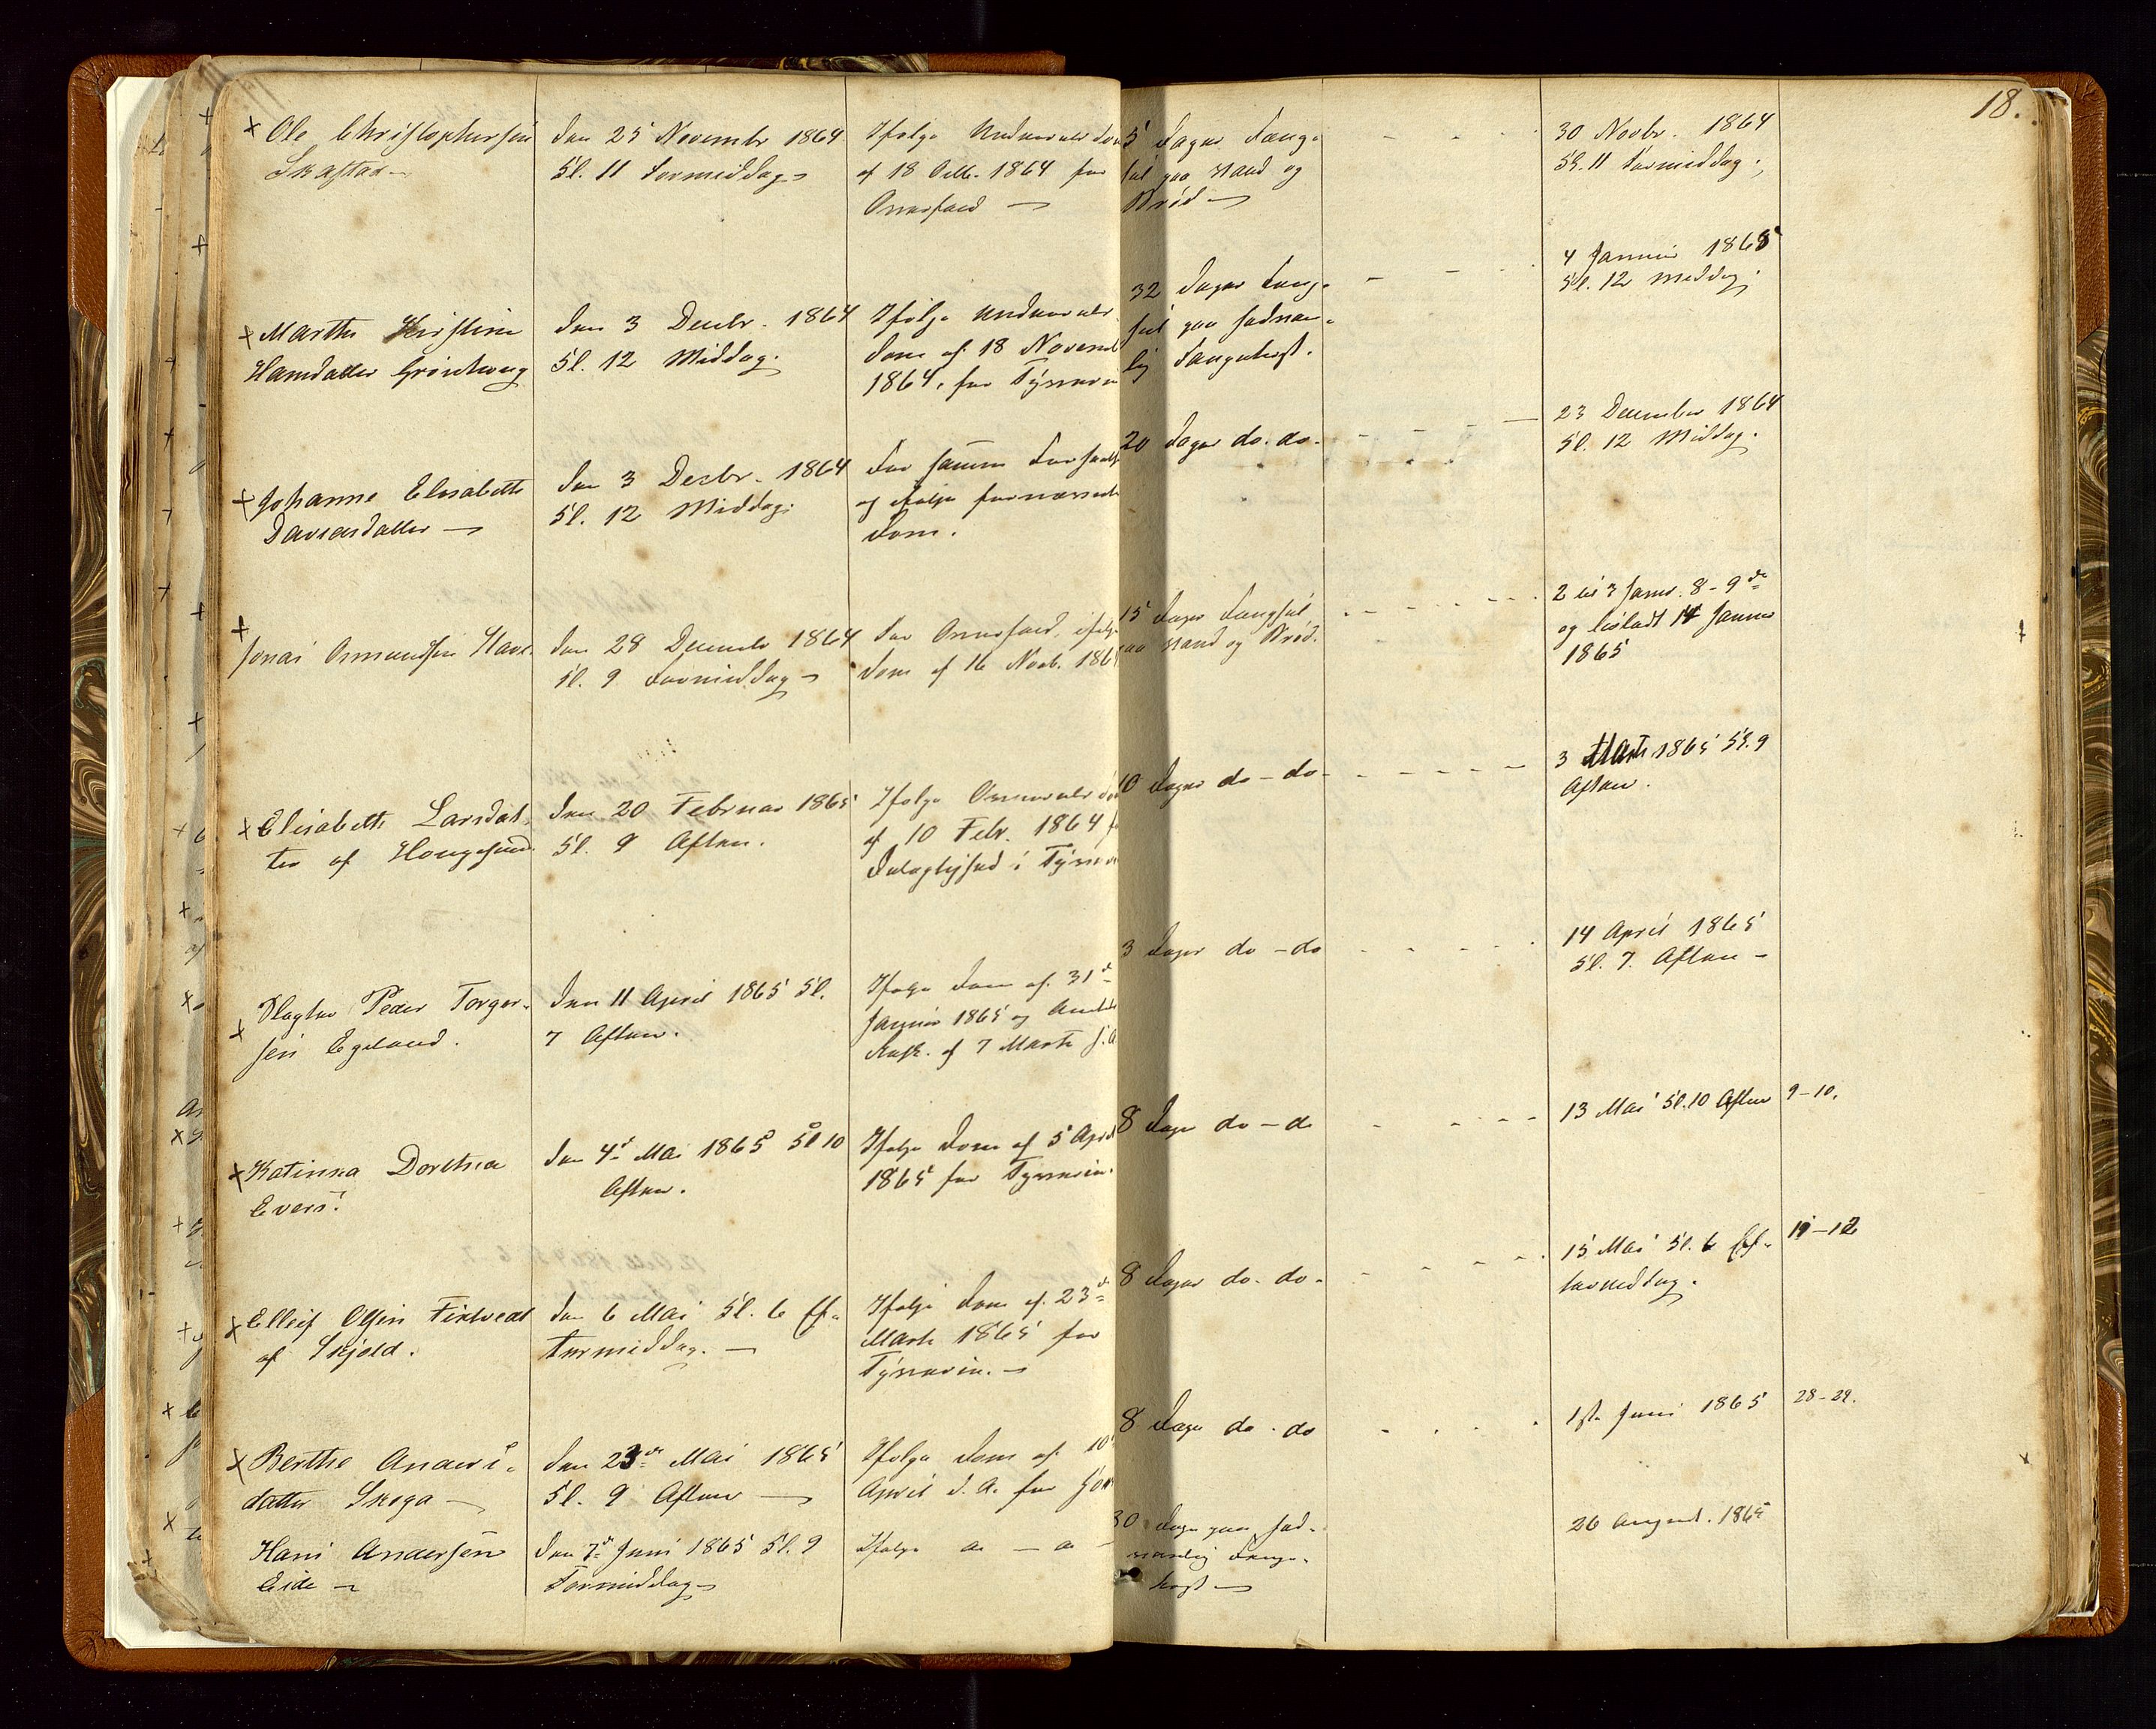 18.
Ole Christophersen
Skaftar
den 25 Novembr 1864
Kl. 11 Formiddag
Ifølge Underrets Dom
af 18 Octb. 1864 for
5 Dages Fæng-
sel paa Vand og
Brød
30 Novbr. 1864
Kl. 11 Formiddag.
Marthe Kirstine
Hansdatter Grindhoug
den 3 Decbr. 1864
Kl. 12 Middag.
Ifølge Underrets
Dom af 18 Novemb
1864. for Tyveri
32 Dages Fæng-
sel paa sædvan-
lig Fangekost.
4 Januar 1865
Kl. 12 Middag.
Johanne Elisabeth
Davidsdatter
den 3 Decbr. 1864
Kl. 12 Middag.
For samme Forseelse
og ifølge fornævnte
Dom.
20 Dages do. do.
23 December 1864
Kl. 12 Middag.
Jonas Osmundsen
den 28 Decembr 1864
Kl. 9 Formiddag
Dom af 16 Novb. 186
15 Dages Fængsel
paa Vand og Brød.
2 til 3 Janr. 8-9 de
og løsladt 14 Januar
1865
Elisabeth Larsdat-
ter af Hougesund
den 20 Februar 1865
Kl. 9 Aften.
Ifølge
af 10 Febr. 1864
Delagtighed i Tyveri
10 Dages do - do
3 Marts 1865 Kl. 9
Aften.
Slagter Peder Torger-
sen Egeland.
den 11 April 1865 Kl.
7 Aften.
Ifølge Dom af 31 de
Januar 1865 og Amtets
af 7 Marts
3 Dages do - do
14 April 1865
Kl. 7. Aften
Katinka Dorthea
Evers.
den 4de Mai 1865 Kl 10
Aften.
Ifølge Dom af 5 April
1865 for Tyverie.
8 Dage do - do
13 Mai Kl. 10 Aften
9-10.
Elleif Olsen
af Skjold.
den 6 Mai Kl. 6 Ef-
termiddag.
Ifølge Dom af 23 de
Marts 1865 for
Tyverie.
8 Dages do. do.
15 Mai Kl. 6 Ef-
termiddag.
11-12
Berthe Anders-
datter Skoga
den 23de Mai 1865
Kl. 9 Aften
Ifølge Dom af 10
April d. A. for
8 Dage do. do
1ste Juni 1865
28-29.
Hans Andersen
Eide
den 7de Juni 1865 Kl. 9
Formiddag
Ifølge
30 Dage paa sæd-
vanlig Fange-
kost
26 August. 1865